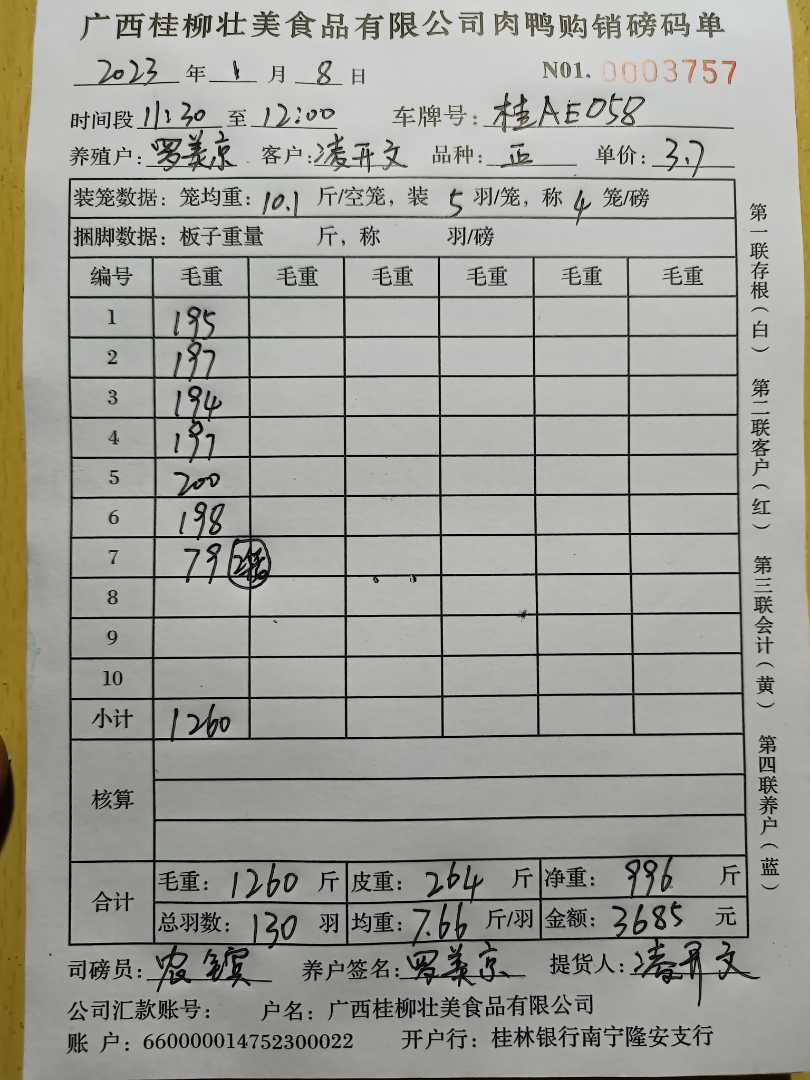 广西桂柳壮美食品有限公司肉鸭购销磅码单
2023 年 1 月 8 日 N01. 0003757
时间段 11:30 至 12:00 车牌号: 桂AE058
养殖户: 罗美京 客户: 凌开文 品种: 正 单价: 3.7
装笼数据: 笼均重: 10.1 斤/空笼, 装 5 羽/笼, 称 4 笼/磅
捆脚数据: 板子重量 斤, 称 羽/磅
编号 毛重 毛重 毛重 毛重 毛重 毛重
1 195
2 197
3 194
4 197
5 200
6 198
7 79
8
9
10
小计 1260
核算
合计 毛重: 1260 斤 皮重: 264 斤 净重: 996 斤
总羽数: 130 羽 均重: 7.66 斤/羽 金额: 3685 元
司磅员: 农 养户签名: 罗美京 提货人: 凌开文
公司汇款账号: 户名: 广西桂柳壮美食品有限公司
账 户: 660000014752300022 开户行: 桂林银行南宁隆安支行
第一联存根(白) 第二联客户(红) 第三联会计(黄) 第四联养户(蓝)